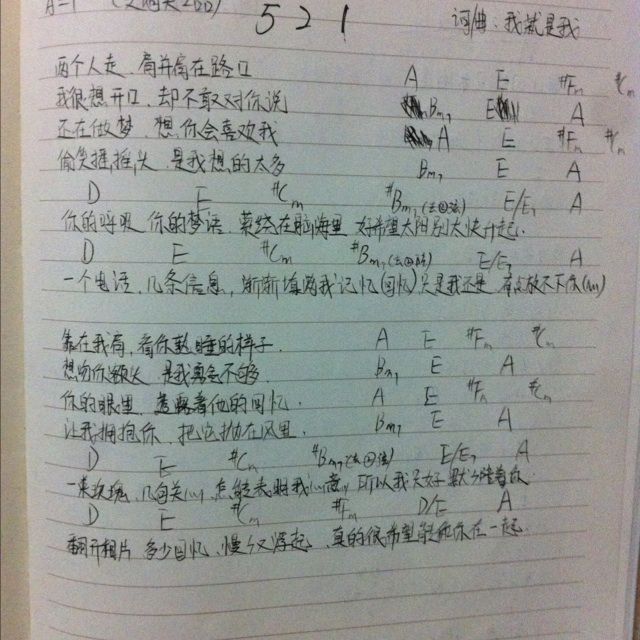 5 2 1
词/曲：我就是我
两个人走，肩并肩在路口 A E #Fm #Cm
我很想开口，却不敢对你说 Bm7 E A
还在做梦，想你会喜欢我 A E #Fm #Cm
偷笑摇摇头 是我想的太多 Bm7 E A
D E #Cm #Bm7 E/E7 A
你的呼吸 你的梦话，萦绕在脑海里 好希望太阳别太快升起.
D E #Cm #Bm7 E/E7 A
一个电话，几条信息，渐渐 我记忆(回忆)只是我还是 放不下你
靠在我肩，看你熟睡的样子. A E #Fm #Cm
想吻你额头 是我真舍不够 Bm7 E A
你的眼里 着他的回忆. A E #Fm #Cm
让我拥抱你，把它抛在风里. Bm7 E A
D E #Cm #Bm7 E/E7 A
一束玫瑰，几句关心，怎能表明我心意，所以我只好默默陪着你
D E #Cm #Fm D/E A
翻开相片 多少回忆，慢慢又浮起，真的很希望能和你在一起.